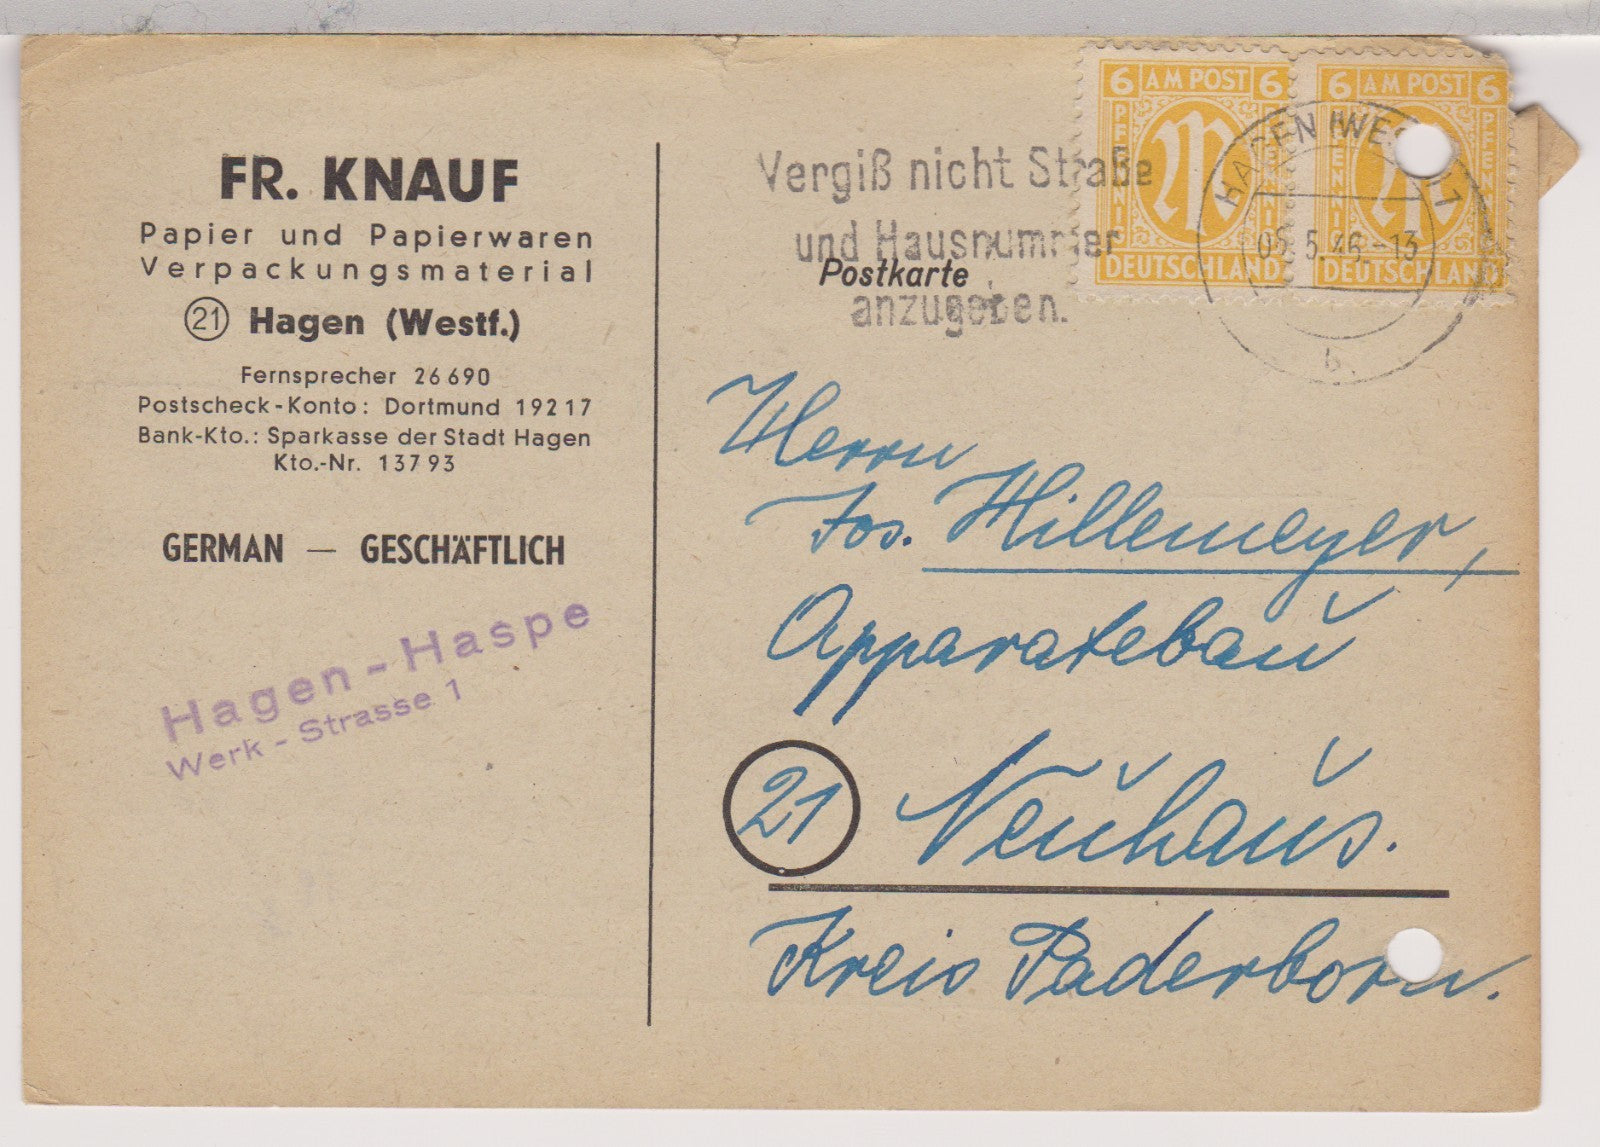 FR. KNAUF
Papier und Papierwaren
Verpackungsmaterial
21 Hagen (Westf.)
Fernsprecher 26 690
Postscheck-Konto: Dortmund 192 17
Bank-Kto.: Sparkasse der Stadt Hagen
Kto.-Nr. 137 93
GERMAN — GESCHÄFTLICH
Hagen-Haspe
Werk-Strasse 1
Vergiß nicht Straße
und Hausnummer
anzugeben.
Postkarte
6 AM POST 6
PFENNIG PFENNIG
DEUTSCHLAND
6 AM POST 6
PFENNIG PFENNIG
DEUTSCHLAND
HAGEN (WESTF) 1
05.5.46.-13
b
Herrn
Jos. Hillemeyer,
Apparatebau
21 Neuhaus.
Kreis Paderborn.